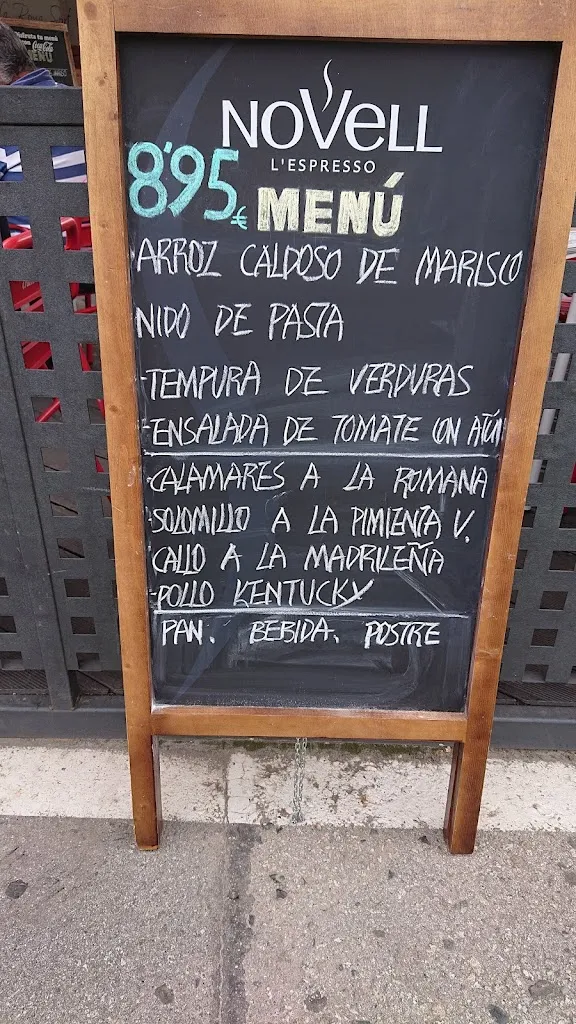 Disfruta tu menú
Coca-Cola
MENÚ
NOVELL
L'ESPRESSO
8'95€ MENÚ
ARROZ CALDOSO DE MARISCO
NIDO DE PASTA
-TEMPURA DE VERDURAS
-ENSALADA DE TOMATE CON ATÚN
-CALAMARES A LA ROMANA
-SOLOMILLO A LA PIMIENTA V.
CALLO A LA MADRILEÑA
-POLLO KENTUCKY
PAN. BEBIDA. POSTRE